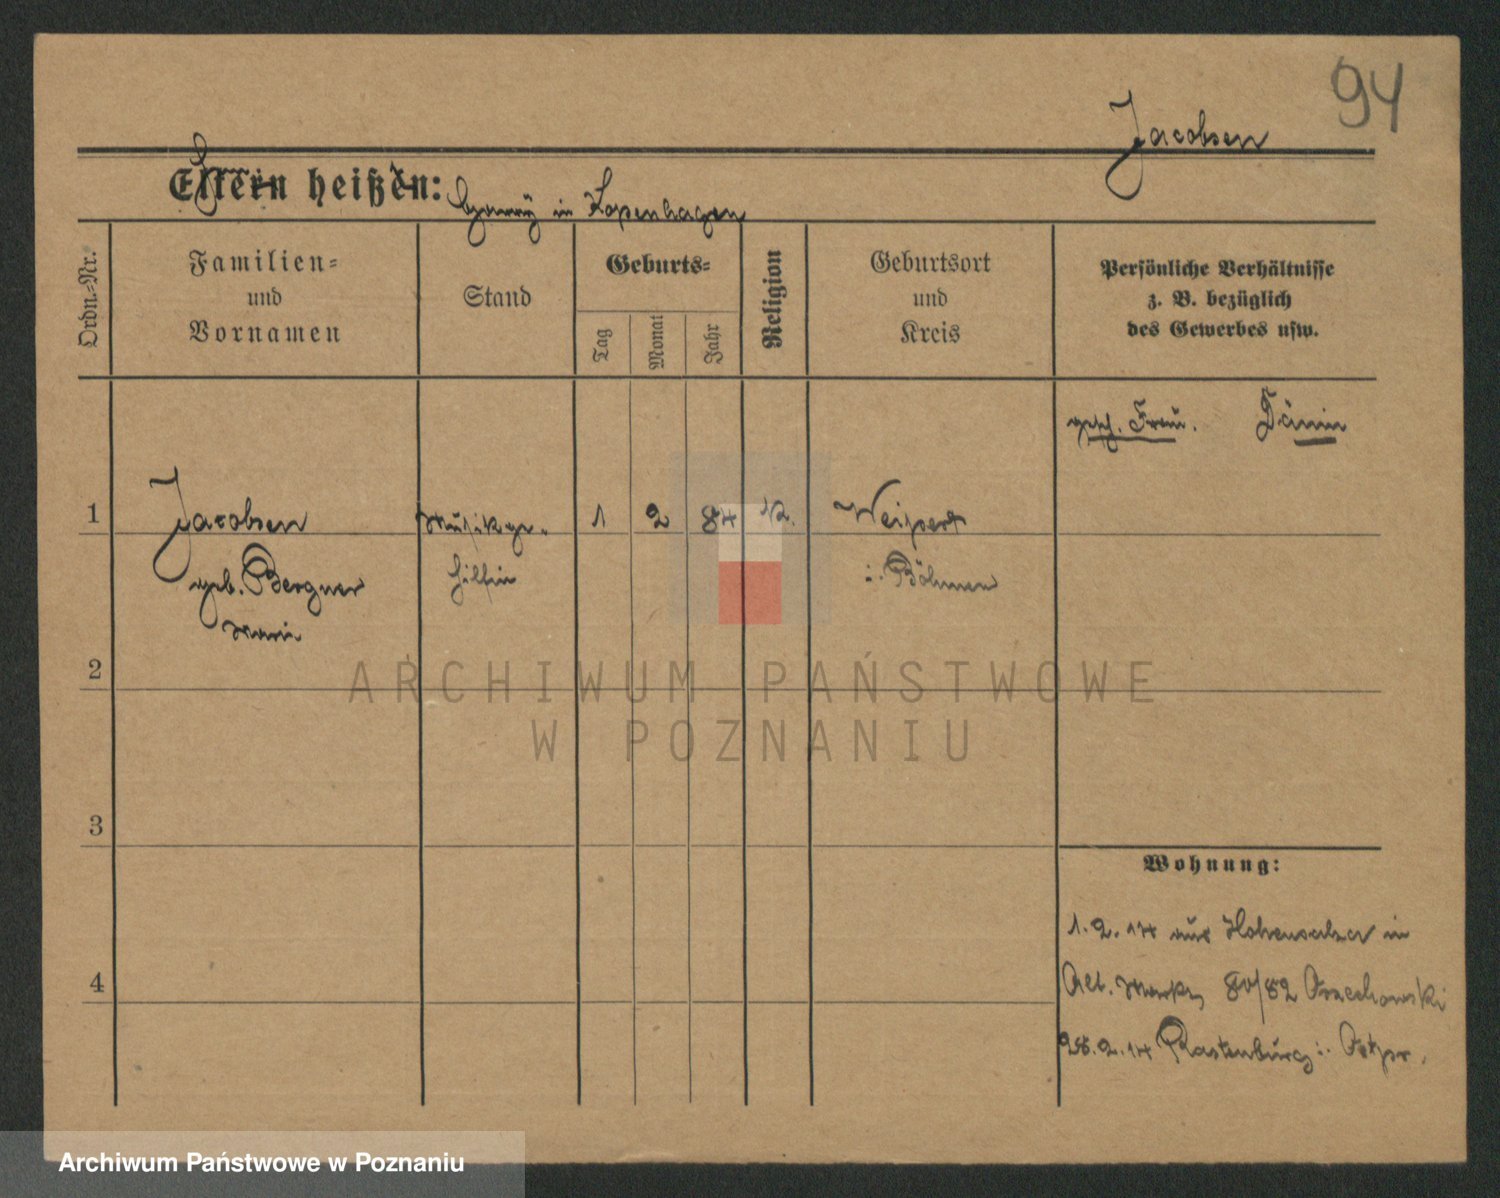 94
Jacobsen
Eltern heißen:
in Kopenhagen
Ordn.-Nr.
Familien-
und
Vornamen
Stand
Geburts-
Tag
Monat
Jahr
Religion
Geburtsort
und
Kreis
Persönliche Verhältnisse
z. B. bezüglich
des Gewerbes usw.
gesch. Frau. Dänin
1 Jacobsen Musikge- 1 2 84 K. Weipert
geb. Bergner hilfin i. Böhmen
Marie
2
3
4
Wohnung:
1.2.14 aus Hohensalza in
Alt. Markt 80/82 Orzechowski
28.2.14 Rastenburg i. Ostpr.
ARCHIWUM PAŃSTWOWE
W POZNANIU
Archiwum Państwowe w Poznaniu